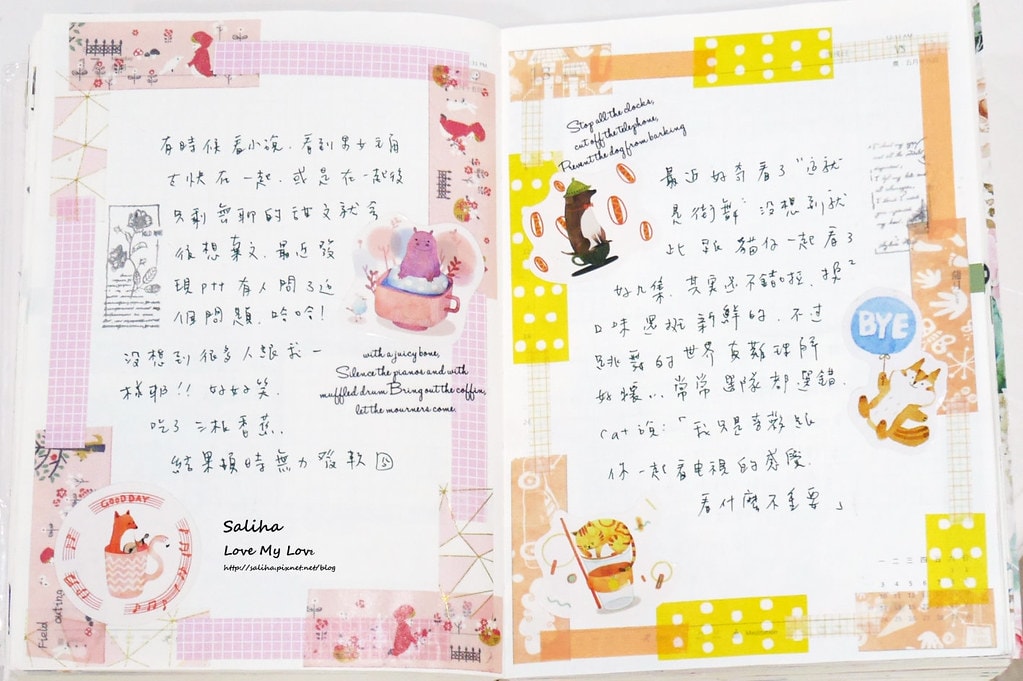 有時候看小說,看到男女主角
在快在一起,或是在一起後
只剩無聊的甜文就會
很想棄文,最近發
現ptt有人問了這
個問題,哈哈!
沒想到很多人跟我一
樣耶!! 好好笑.
吃了三根香蕉.
結果頓時無力發軟
with a juicy bone,
Silence the pianos and with
muffled drum Bring out the coffin,
let the mourners come.
GOOD DAY
Field outing
Saliha
Love My Love
http://saliha.pixnet.net/blog
Stop all the clocks,
cut off the telephone,
Prevent the dog from barking
最近好奇看了"這就
是街舞" 沒想到就
此跟貓仔一起看了
好幾集,其實還不錯啦,換
口味思新鮮的,不過
跳舞的世界真難理解
好壞,常常選隊都選錯.
cat說:「我只是喜歡跟
你一起看电視的感覺.
看什麼不重要」
BYE
一 二 三 四